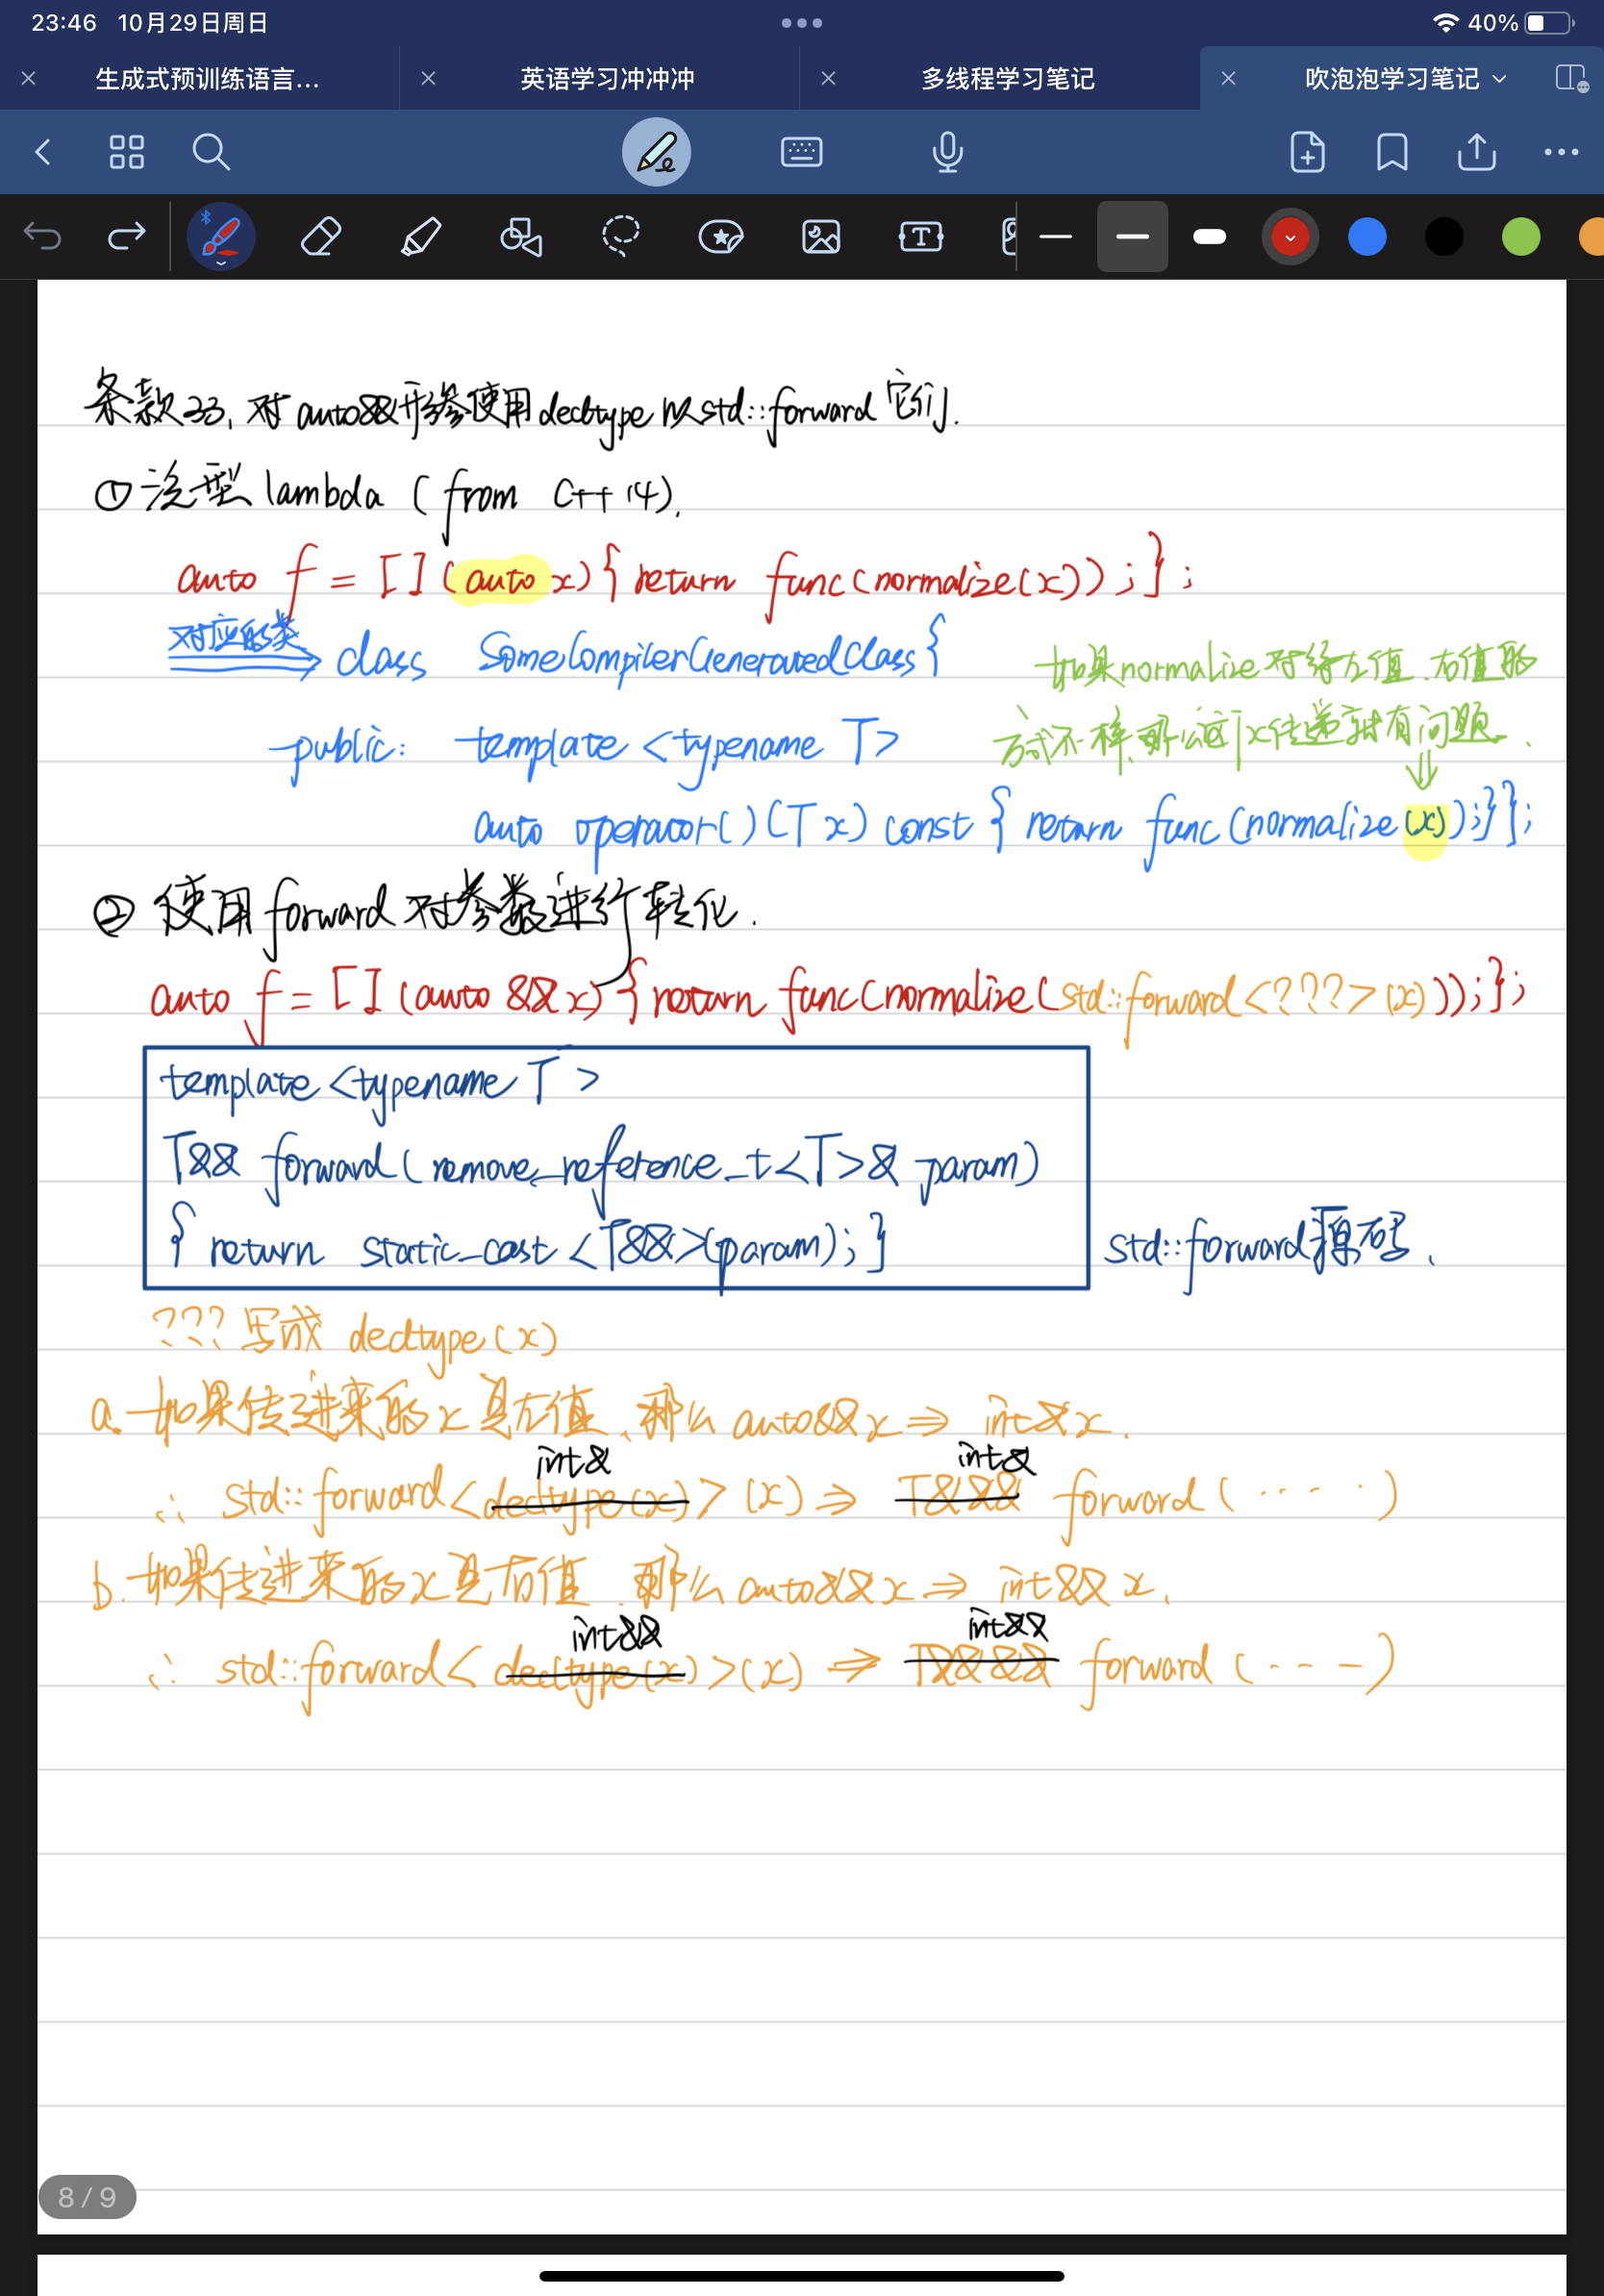 23:46 10月29日周日
40%
生成式预训练语言... 英语学习冲冲冲 多线程学习笔记 吹泡泡学习笔记
条款33, 对auto&&形参使用decltype以std::forward它们.
① 泛型lambda (from C++14).
auto f = [](auto x){return func(normalize(x));};
对应的类
class SomeCompilerGeneratedClass{
如果normalize对待左值、右值的
public: template <typename T>
方式不一样,那么这个x传递就有问题.
auto operator()(T x) const { return func(normalize(x));}};
② 使用forward对参数进行转化.
auto f = [](auto &&x){return func(normalize(std::forward<???>(x)));};
template <typename T>
T&& forward(remove_reference_t<T>& param)
{ return static_cast<T&&>(param);}
std::forward源码.
??? 写成 decltype(x)
a. 如果传进来的x是左值、那么auto&&x ⇒ int&x.
int& int&
∴ std::forward<decltype(x)>(x) ⇒ T&&& forward(·····)
b. 如果传进来的x是右值、那么auto&&x ⇒ int&&x.
int&& int&&
∴ std::forward<decltype(x)>(x) ⇒ T&&&& forward(----)
8 / 9